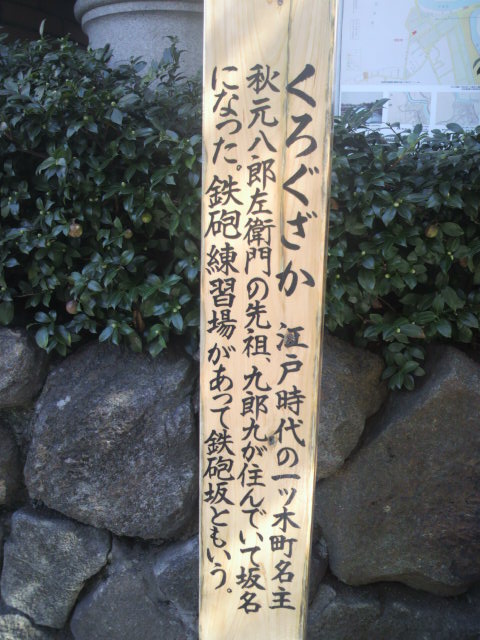 くろぐざか 江戸時代の一ツ木町名主
秋元八郎左衛門の先祖、九郎九が住んでいて坂名
になった。鉄砲練習場があって鉄砲坂ともいう。